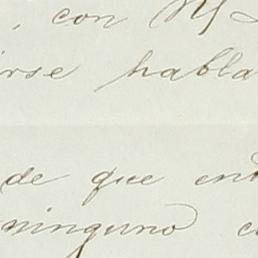 , con
irse habla
de que ent
ninguno c